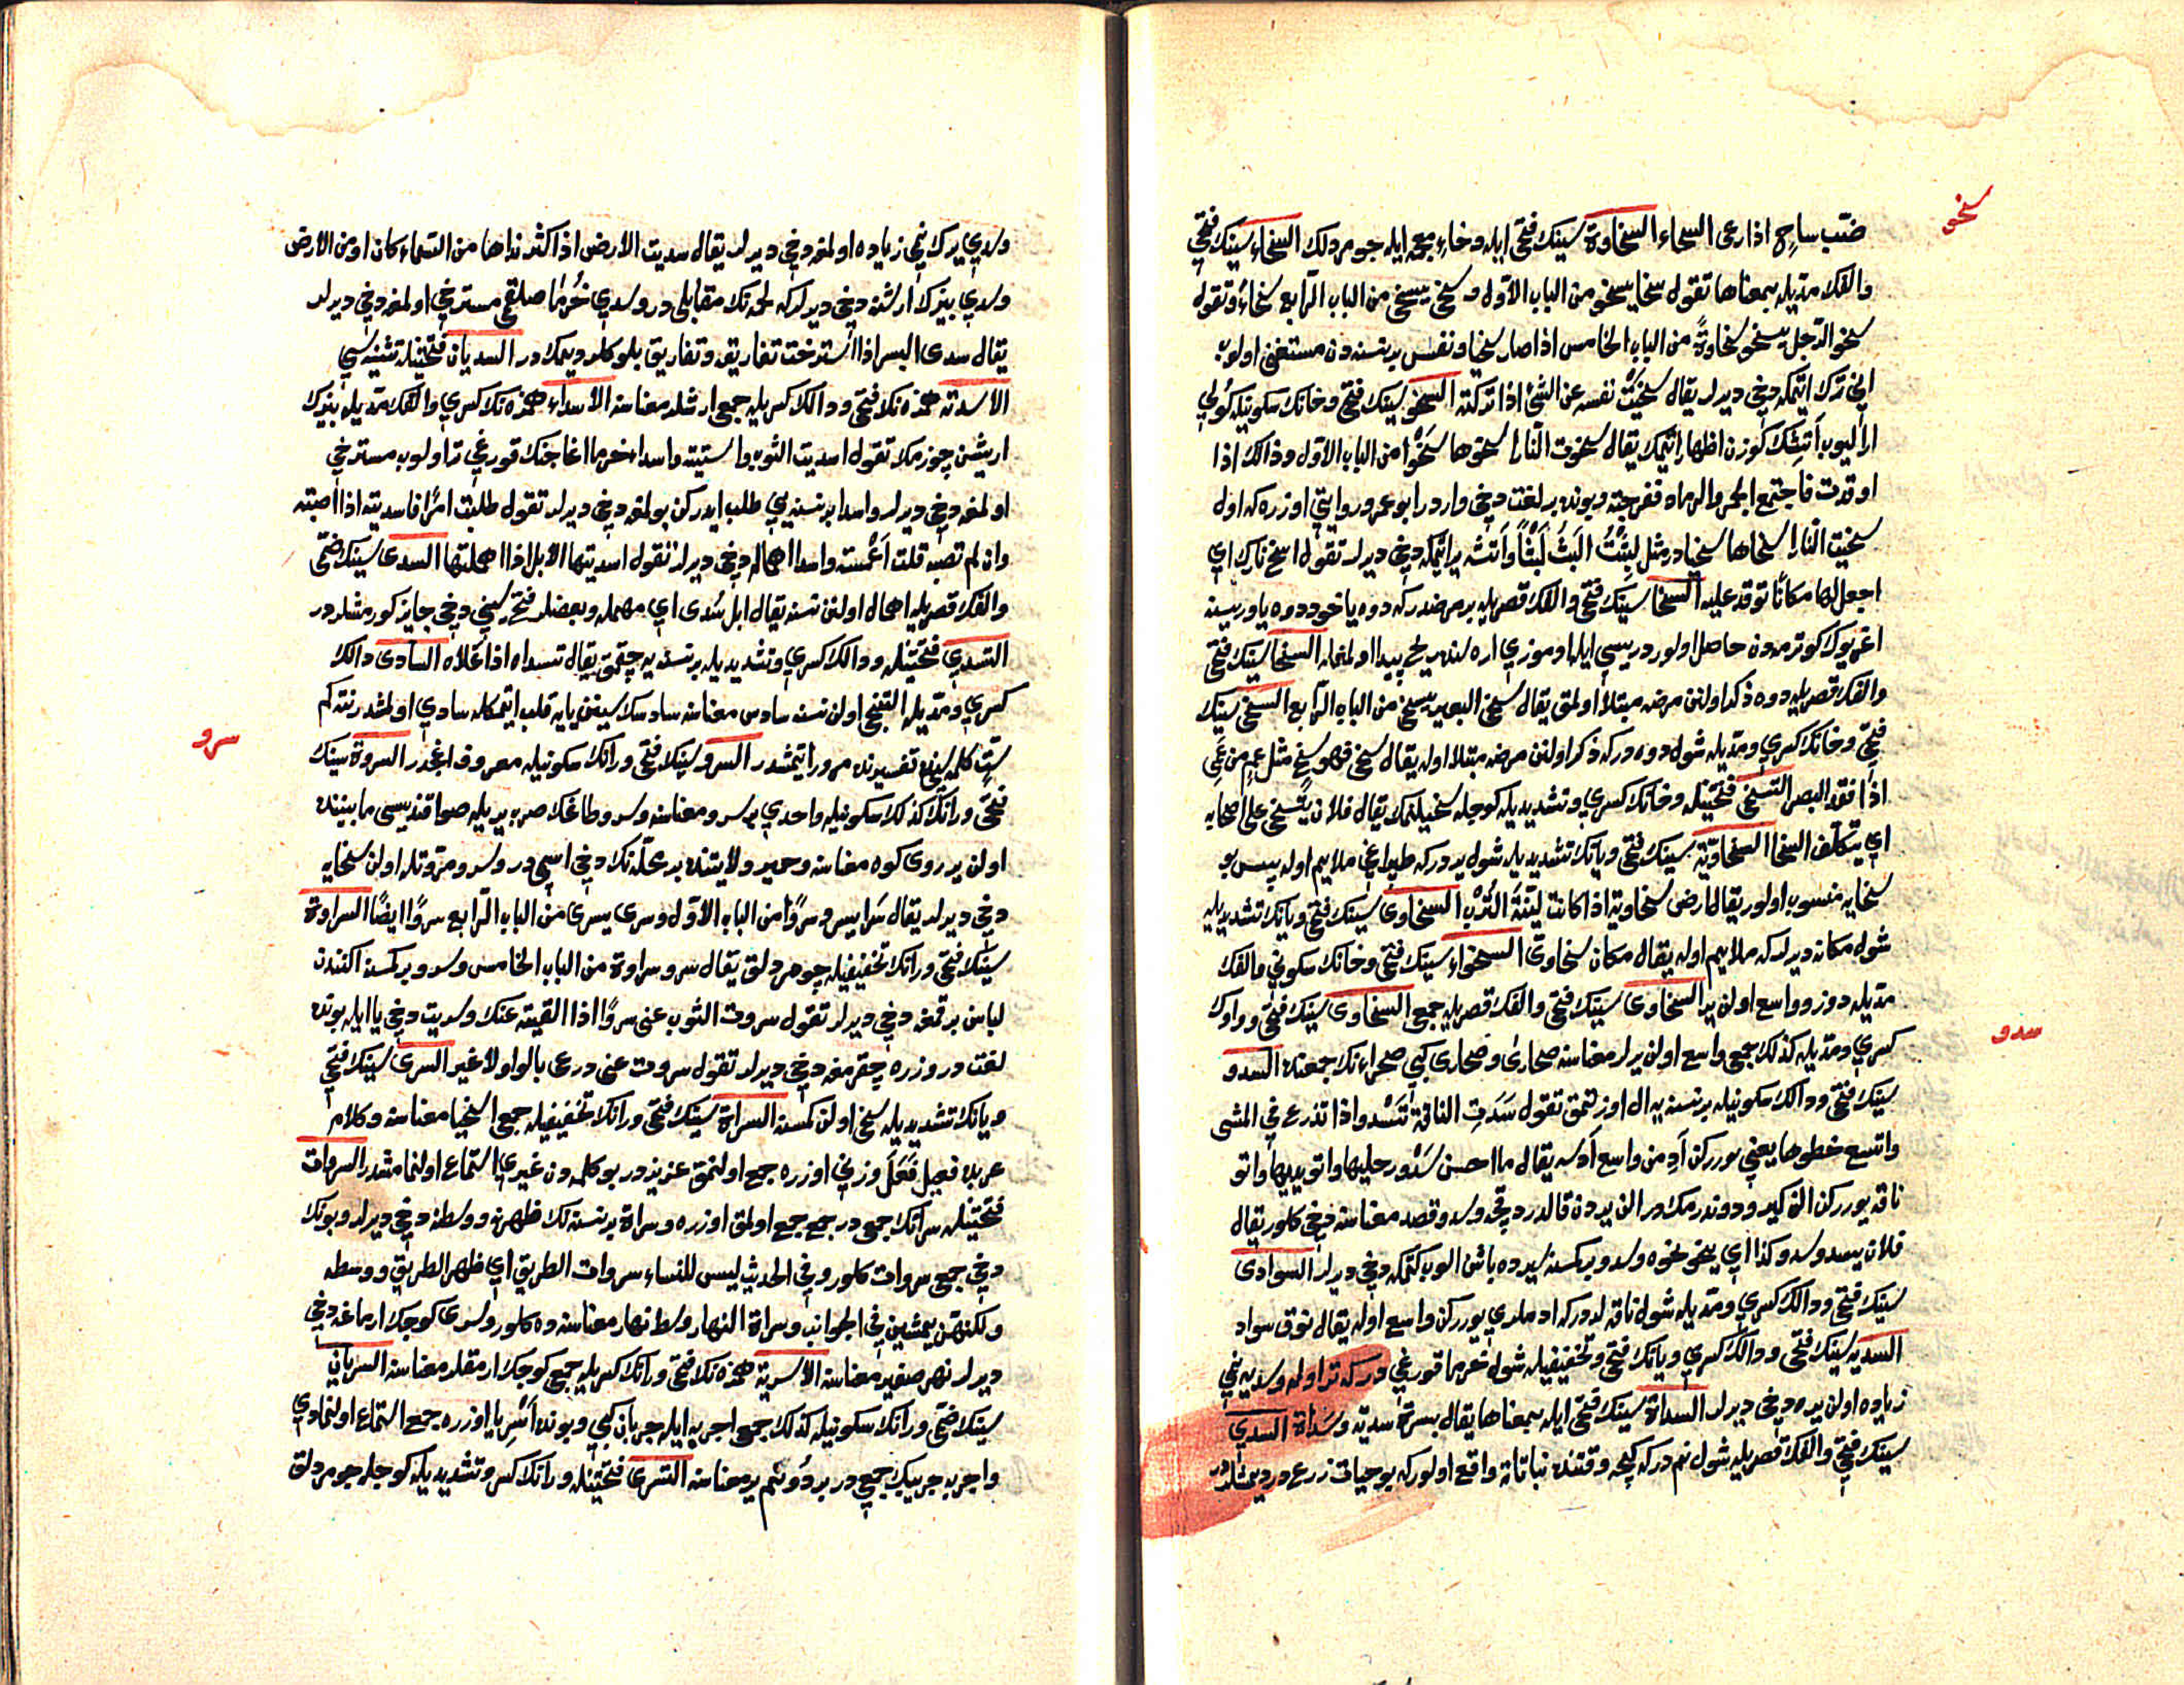 سخى
ضب ساح اذا رعى السحاء السخاوة سينك فتحى ايله وخاء معجمه ايله جومردلك السخاء سينك فتحى
والفك مديله بمعناها تقول سخا يسخو من الباب الاول وسخى يسخى من الباب الرابع سخاء وتقول
سخو الرجل يسخو سخاوة من الباب الخامس اذا صار سخيا ونفس بر نسنه دن مستغنى اولوب
انى ترك ايتمكه دخى ديرلر يقال سخيت نفسه عن الشئ اذا تركته السخو سينك فتحى وخانك سكونيله كولى
ارالیوب آتشك كوزن اظهار اتمك يقال سخوت النار اسخوها سخوا من الباب الاول وذالك اذا
اوقدت فاجتمع الجمر والرماد ففرجته وبونده بر لغت دخى واردر ابو عمرو روايتى اوزره كه اول
سخيت النار اسخاها سخيا در مثل لبثت البث لبثا وآتشه ير اتمكه دخى ديرلر تقول اسخ نارك اى
اجعل لها مكانا توقد عليه السخا سينك فتحى والفك قصريله بر مرضدر كه دوه ياخود دوه ياوريسنه
اغريوك كوترمه دن حاصل اولور دريسى ايله اوموزى اره لنده ريح پيدا اولمغله السخا سينك فتحى
والفك قصريله دوه ذكر اولنن مرضه مبتلا اولمق يقال سخى البعير يسخى من الباب الرابع السخى سينك
فتحى وخانك كسرى ومديله شول دوه در كه ذكر اولنن مرضه مبتلا اوله يقال سخى فهو سخ مثل عم من عمى
اذا فقد البصر التسخى فتحتينله وخانك كسرى وتشديديله كوجله سخيلنمك يقال فلان يتسخى على اصحابه
اى يتكلف السخا السخاوية سينك فتحى ويانك تشديديله شول يردر كه طپراغى ملايم اوله پيس بو
سخايه منسوب اولور يقال ارض سخاوية اذا كانت لينة الترب السخاوى سينك فتحى ويانك تشديديله
شول مكانه ديرلر كه ملايم اوله يقال مكان سخاوى السخواء سينك فتحى وخانك سكونى والفك
مديله دوز وواسع اولن ير السخاوى سينك فتحى والفك قصريله جمع السخاوى سينك فتحى وواوك
كسرى ومديله كذلك جمع واسع اولن يرلر معناسنه صحارى وصحارى كبى صحراءنك جمعنده السدو
سدو
سينك فتحى ودالك سكونيله بر نسنه يه ال اوزتمق تقول سدت الناقة تسدو اذا تذرع فى المشى
واتسع خطوها يعنى يورركن آدمن واسع آده يقال ما احسن سدو رجليها واتو يديها واتو
ناقه يوررکن الن كيرو دوندرمكدر الن يردن قالدردقجه وسدو قصد معناسنه دخى كلور يقال
فلان يسدو سدو كذا اى ينحو نحوه وسدو بر كسنه يرده باشن الوب كتمكه دخى ديرلر السوادى
سينك فتحى ودالك كسرى ومديله شول ناقه لردر كه ادملرى يوررکن واسع اوله يقال نوق سواد
السديه سينك فتحى ودالك كسرى ويانك فتحى وتخفيفيله شول خرما قوريغى در كه تر اوله وسديه نمى
زياده اولن يره دخى ديرلر السداة سينك فتحى ايله بمعناها يقال بسرة سدية وسداة السدى
سينك فتحى والفك قصريله شول نم در كه كيجه وقتنده نباتاته واقع اولور كه بو حيات زرع در ديمشلردر
وسدى يرك نمى زياده اولمغه دخى ديرلر يقال سديت الارض اذا كثر نداها من السماء كان او من الارض
وسدى بيزك ارشنه دخى ديرلر كه لحمه نك مقابلى در وسدى خرما صلقمى مسترخى اولمغه دخى ديرلر
يقال سدى البسر اذا استرخت تفاريقه وتفاريق بلوكلر ديمكدر السديان فتحتينله تثنيه سى
الاسدته همزه نك فتحى ودالك كسريله جمع ارشلر معناسنه الاسداء همزه نك كسرى والفك مديله بيزك
اريشن چوزمك تقول اسديت الثوب واستيته واسداء خرما اغاجنك قوريغى تر اولوب مسترخى
اولمغه دخى ديرلر واسدا بر نسنه يى طلب ايدركن بولمغه دخى ديرلر تقول طلبت امرا فاسديته اذا اصبته
وان لم تصبه قلت اغمسته واسدا اهماله دخى ديرلر تقول اسديتها الابل اذا اهملتها السدى سينك ضمى
والفك قصريله اهمال اولنن نسنه يقال ابل سدى اى مهمله وبعضلر فتح سينى دخى جايز كورمشلردر
التسدى فتحتينله ودالك كسرى وتشديديله بر نسنه يه چقمق يقال تسداه اذا علاه السادى دالك
كسرى ومديله التنجى اولن نسنه سادس معناسنه سادسك سينن يايه قلب ايتمكله سادى اولمشدر نته كم
ست كلمه سينك تفسيرنده مرور ايتمشدر السرو سينك فتحى ورانك سكونيله معروف اغجدر السروة سينك
سرو
فتحى ورانك كذلك سكونيله واحدى بر سرو معناسنه وسرو طاغك صرب يريله صو اقنديسى مابيننده
اولن ير روى كوه معناسنه وحمير ولايتنده بر محلك دخى اسمى در وسرو مروتله اولن سخايه
دخى ديرلر يقال سرا يسرو سروا من الباب الاول وسرى يسرى من الباب الرابع سروا ايضا السراوة
سينك فتحى ورانك تخفيفيله جومردلق يقال سرو سراوة من الباب الخامس وسرو بر كمسنه اكنندن
لباس برقمغه دخى ديرلر تقول سروت الثوب عنى سروا اذا القيته عنك وسريت دخى يا ايله بونده
لغت در وزره چقرمغه دخى ديرلر تقول سروت عنى درعى بالواو لا غير السرى سينك فتحى
ويانك تشديديله سخى اولن كمسنه السراة سينك فتحى ورانك تخفيفيله جمع اسخيا معناسنه وكلام
عربده فعيل فعل وزنى اوزره جمع اولنمق عزيزدر بو كلمه دن غيرى استماع اولنمامشدر السروات
فتحتينله سراتك جمعى در جمع جمع اولمق اوزره وسراة بر نسنه نك ظهرنه ووسطنه دخى ديرلر وبونك
دخى جمعى سروات كلور وفى الحديث ليس للنساء سروات الطريق اى ظهر الطريق ووسطه
ولكنهن يمشين فى الجوانب وسراة النهار وسط نهار معناسنه ده كلور وسرى كوجك ارماغه دخى
ديرلر نهر صغير معناسنه الاسرية همزه نك فتحى ورانك كسريله جمع كوجك ارمقلر معناسنه السريان
سينك ضمى ورانك سكونيله كذلك جمع اجربه ايله جربان كبى وبونده اسريا اوزره جمع استماع اولنمادى
واجربه جريبك جمعى در بر دونم ير معناسنه التسرى فتحتينله ورانك كسر وتشديديله كوجله جومردلق